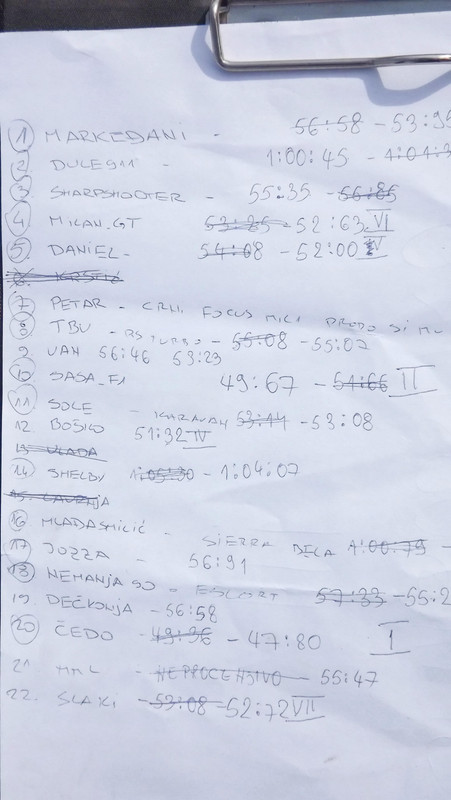 1 MARKEDANI - 56:58 - 53:95
2 DULE911 - 1:00:45 - 1:01:3
3 SHARPSHOOTER - 55:35 - 56:85
4 MILAN_GT 53:85 - 52:63 VI
5. DANIEL - 54:08 - 52:00 V
7 PETAR - CRNI FOCUS MK1 PRODO SI MU
8 TBU - RS TURBO - 55:08 - 55:07
9. VAN 56:46 53:23
10 SASA_F1 49:67 - 51:66 II
11 SOLE - KARAVAN 53:14 - 53:08
12 BOŠKO 51:32 IV
13 VLADA
14 SHELBY 1:05:30 - 1:04:07
16 MLADJASMILIĆ - SIERRA BELA 1:00:79 -
17 JOZZA - 56:91
18 NEMANJA SO - ESCORT 57:33 - 55:2
19. DEČKONJA - 56:58
20 ČEDO - 49:36 - 47:80 I
21 - NEPROCENJIVO - 55:47
22. SLAKI - 53:08 - 52:72 VII